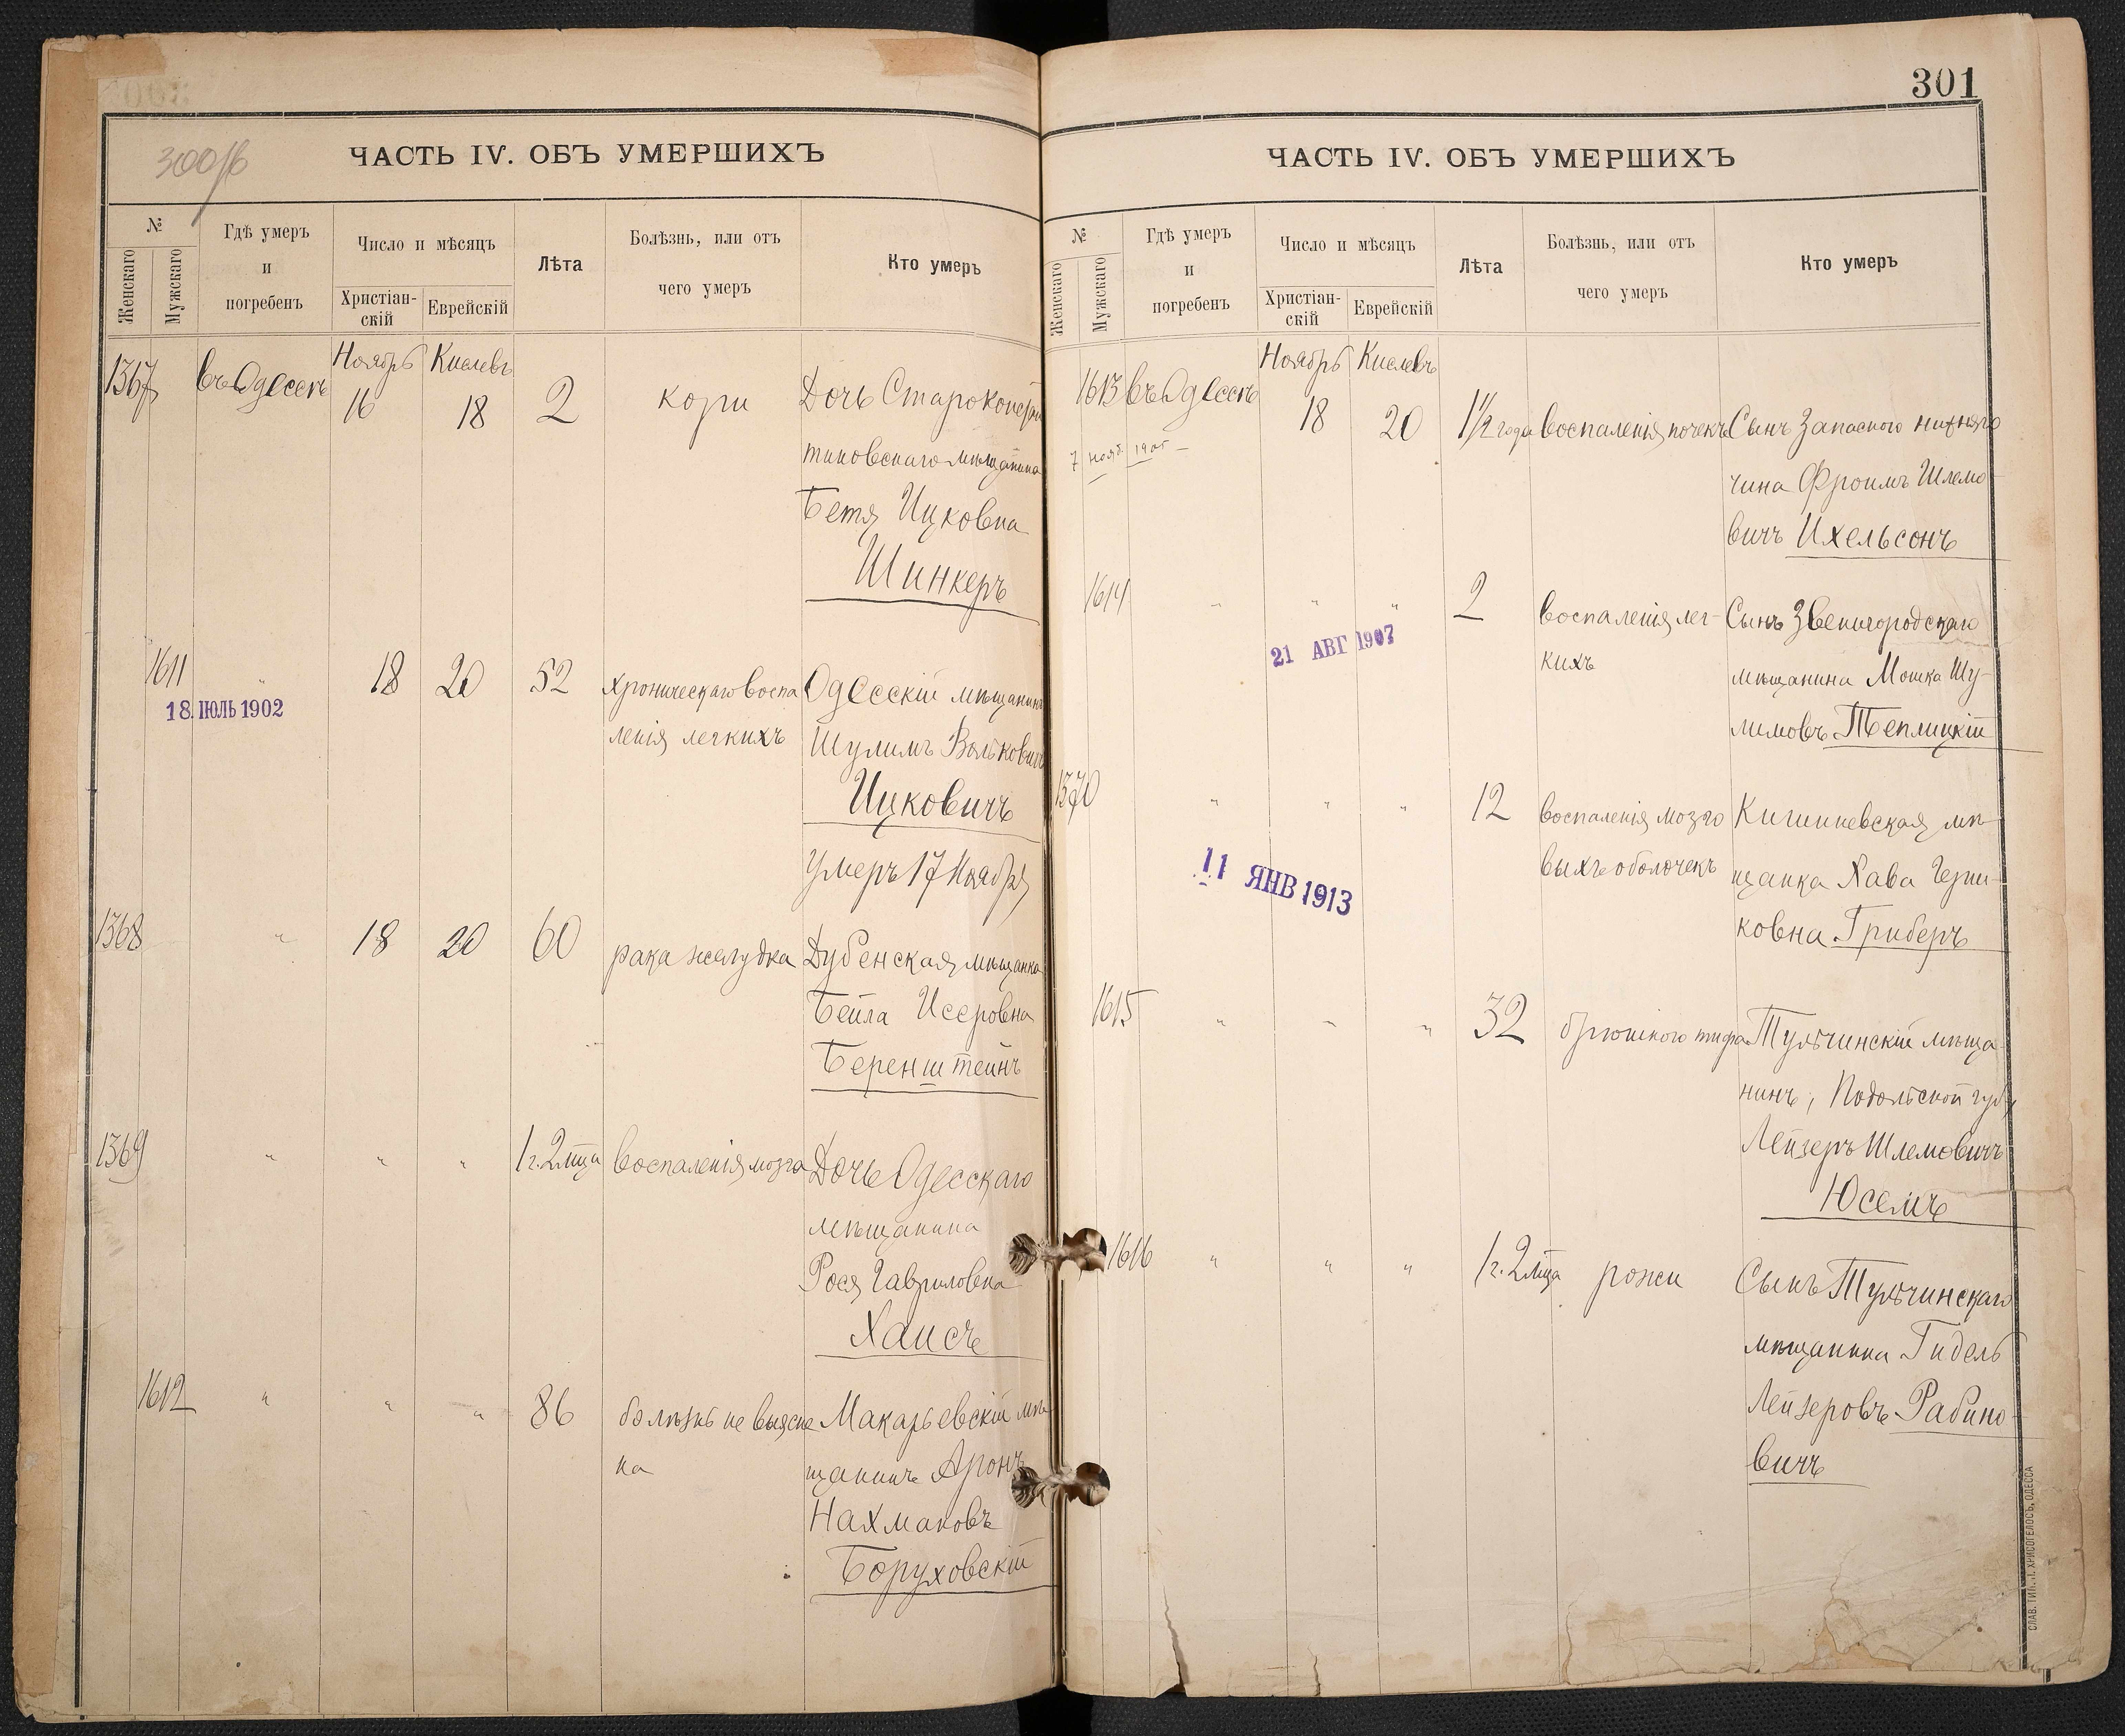 300об
ЧАСТЬ IV. ОБЪ УМЕРШИХЪ
№
Женскаго
Мужскаго
Гдѣ умеръ
и
погребенъ
Число и мѣсяцъ
Христіан-
скій
Еврейскій
Лѣта
Болѣзнь, или отъ
чего умеръ
Кто умеръ
Ноябрь Кислевъ
1367 въ Одессѣ 16 18 2 кори Дочь Староконстан
тиновскаго мѣщанина
Бетя Ицковна
Шинкеръ
1611 " 18 20 52 хроническаго воспа Одесскій мѣщанинъ
18 ІЮЛЬ 1902
ленія легкихъ Шулимъ Вольковичъ
Ицковичъ
Умеръ 17 Ноября
1368 " 18 20 60 рака желудка Дубенская мѣщанка
Бейла Исеровна
Беренштейнъ
1369 " " " 1 г. 2 мца воспаленія мозга Дочь Одесскаго
мѣщанина
Рося Гавриловна
Хаисъ
1612 " " " 86 болѣзнь не выясне Макарьевскій мѣ
на щанинъ Аронъ
Нахмановъ
Боруховскій
301
ЧАСТЬ IV. ОБЪ УМЕРШИХЪ
№
Женскаго
Мужскаго
Гдѣ умеръ
и
погребенъ
Число и мѣсяцъ
Христіан-
скій
Еврейскій
Лѣта
Болѣзнь, или отъ
чего умеръ
Кто умеръ
Ноябрь Кислевъ
1613 въ Одессѣ 18 20 1½ года воспаленія почекъ Сынъ Запасного нижняго
7 нояб. 1905
чина Фроимъ Шлемо-
вичъ Ихельсонъ
1614 " " " 2 воспаленія лег- Сынъ Звенигородскаго
21 АВГ 1907
кихъ мѣщанина Мошка Шу-
лимовъ Теплицкій
1370 " " " 12 воспаленія мозго Кишиневская мѣ-
11 ЯНВ 1913
выхъ оболочекъ щанка Хава
ковна Гриберъ
1615 " " " 32 брюшного тифа Тульчинскій мѣща-
нинъ, Подольской губ
Лейзеръ Шлемовичъ
Юсемъ
1616 " " " 1 г. 2 мца рожи Сынъ Тульчинскаго
мѣщанина Гидель
Лейзеровъ Рабино-
вичъ
СЛАВ. ТИП. Н. ХРИСОГЕЛОСЪ, ОДЕССА